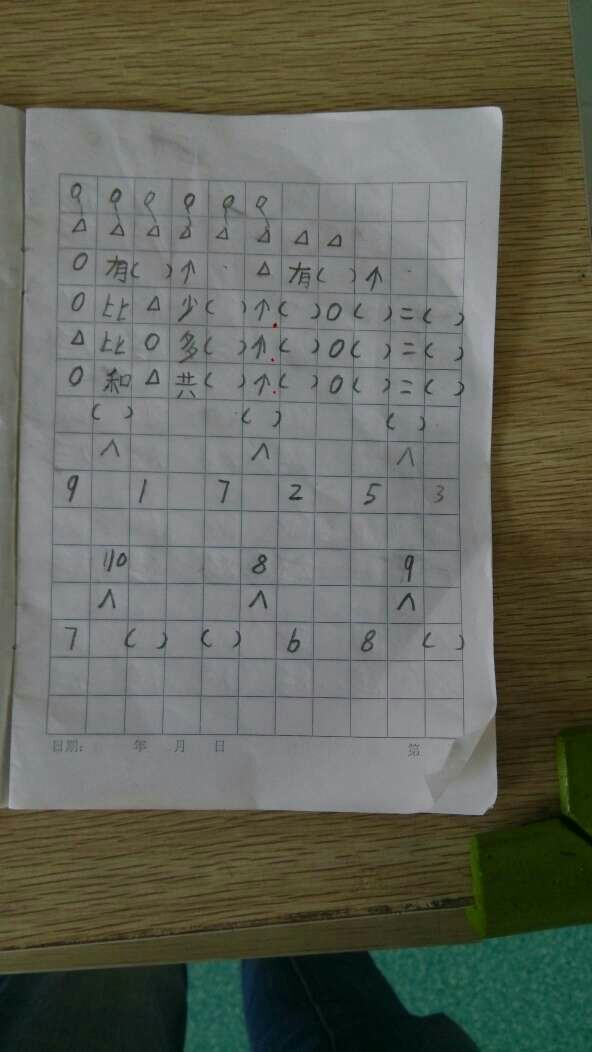 ○ ○ ○ ○ ○ ○
△ △ △ △ △ △ △ △
○ 有( )个 △ 有( )个
○ 比 △ 少( )个( )○( )=( )
△ 比 ○ 多( )个( )○( )=( )
○ 和 △ 共( )个( )○( )=( )
( ) ( ) ( )
∧ ∧ ∧
9 1 7 2 5 3
10 8 9
∧ ∧ ∧
7 ( ) ( ) 6 8 ( )
日期: 年 月 日 第